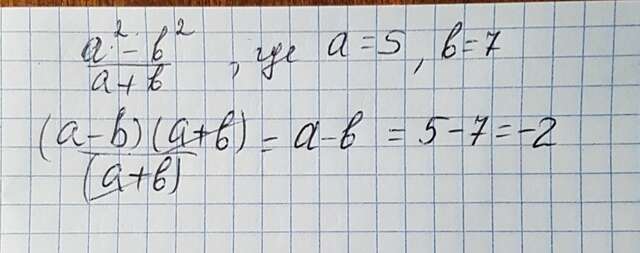 a² - b² / a + b , где a = 5 , b = 7
(a - b)(a + b) / (a + b) = a - b = 5 - 7 = -2